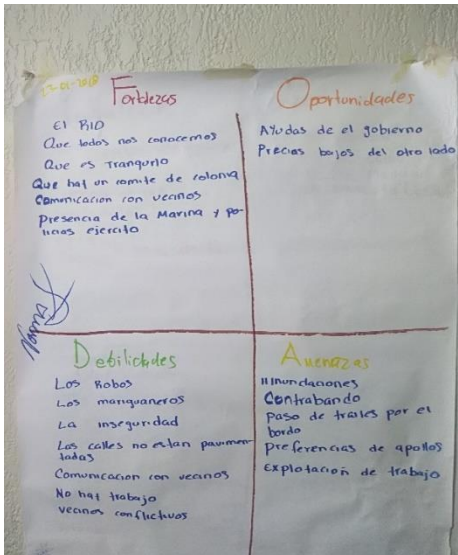 Fortalezas
El RIO
Que todos nos conocemos
Que es Tranquilo
Que hat un comite de colonia
Comunicacion con vecinos
Presencia de la Marina y po-
licias ejercito
Oportunidades
Ayudas de el gobierno
Precios bajos del otro lado
Debilidades
Los Robos
Los manguaneros
La inseguridad
Las calles no estan pavimen
tadas
Comunicacion con vecinos
No hat trabajo
vecinos conflictivos
Amenazas
Inundaciones
Contrabando
Paso de trailes por el
bordo
Preferencias de apollos
Explotación de trabajo